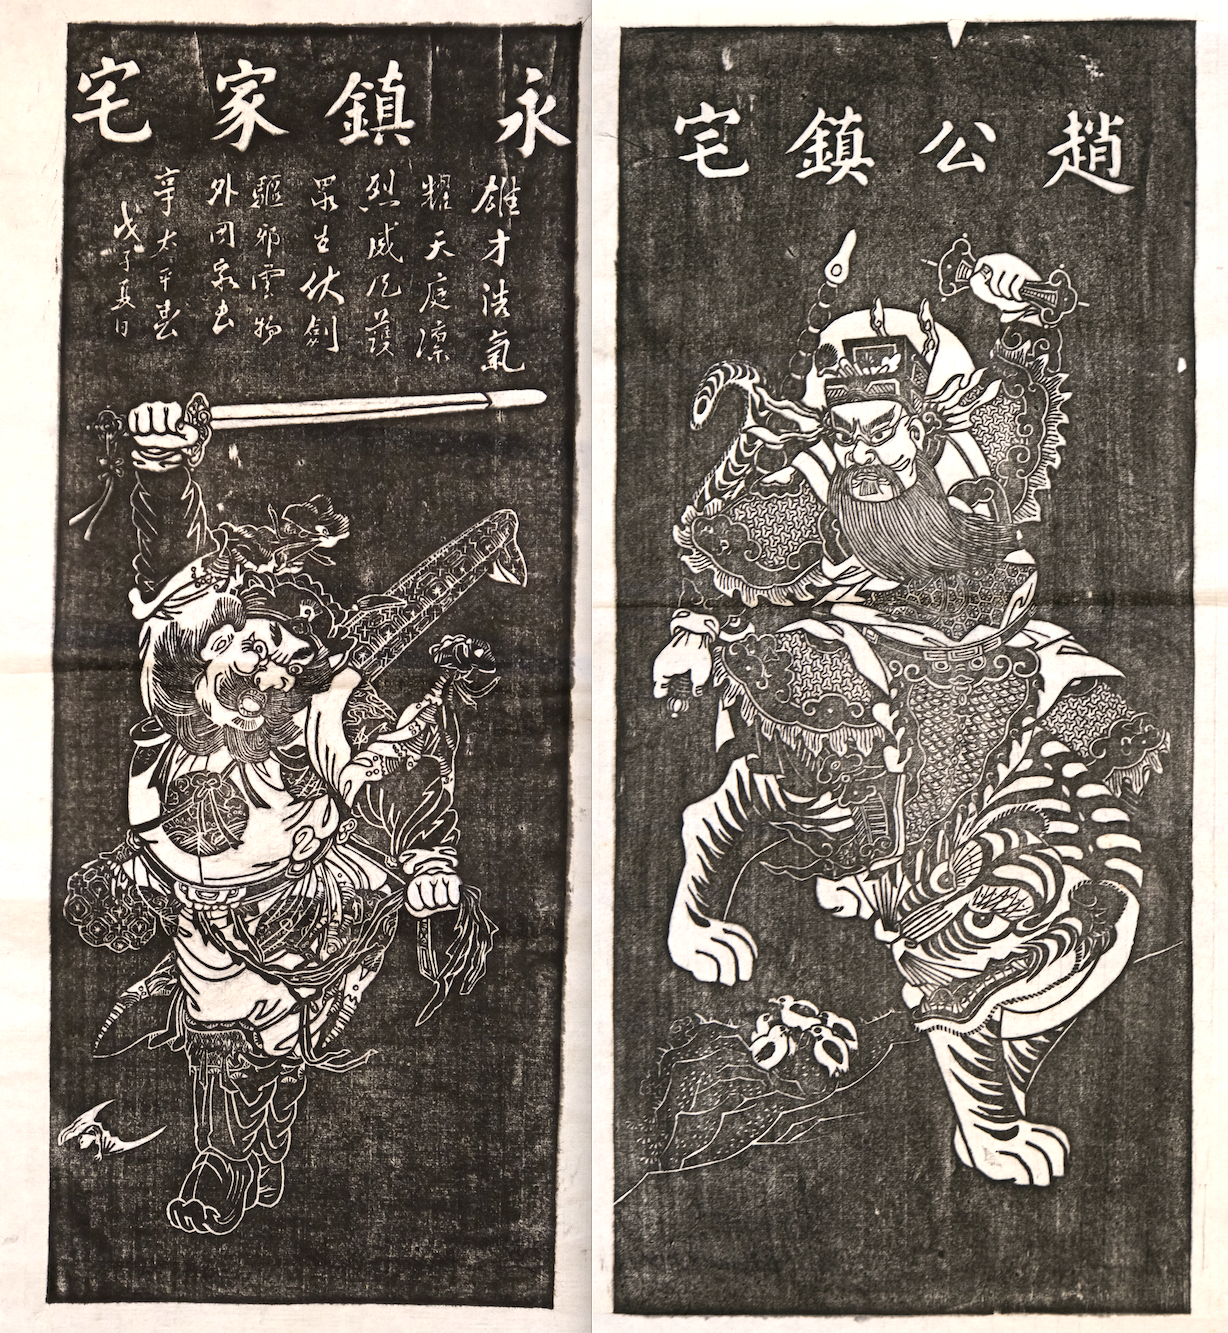 永鎮家宅
雄才浩氣
耀天庭凜
烈威风護
眾生伏劍
驅邪雲物
外国家
享太平春
戊子夏日
趙公鎮宅